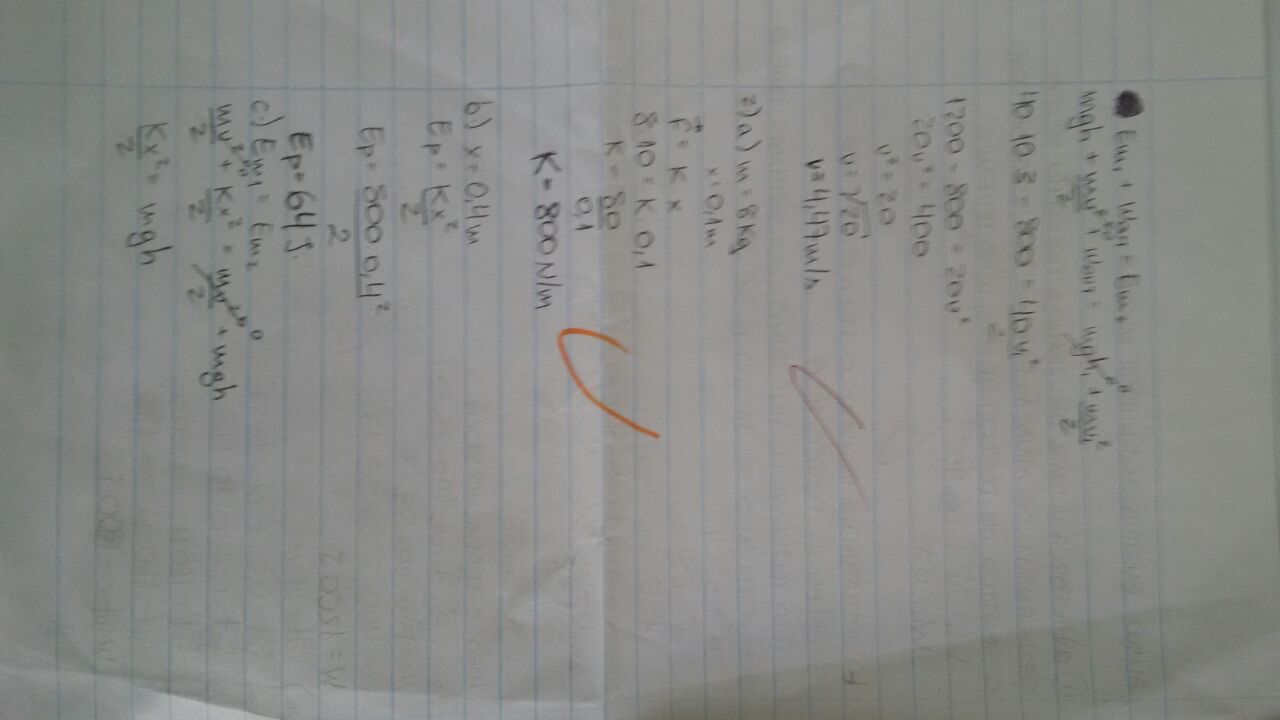 Em₁ + Wat = Em₂
mgh + mv²/2 + Wat = mgh + mv²/2
40 10 3 = 800 = 40v²/2
1200 = 800 = 20v²
20v² = 400
v² = 20
v = √20
v = 4,47 m/s
2) a) m = 8 kg
x = 0,1 m
F = K x
8 10 = K 0,1
K = 80/0,1
K = 800 N/m
b) x = 0,4 m
Ep = Kx²/2
Ep = 800 0,4²/2
Ep = 64 J.
c) Em₁ = Em₂
mv²/2 + Kx²/2 = mv²/2 + mgh
Kx²/2 = mgh